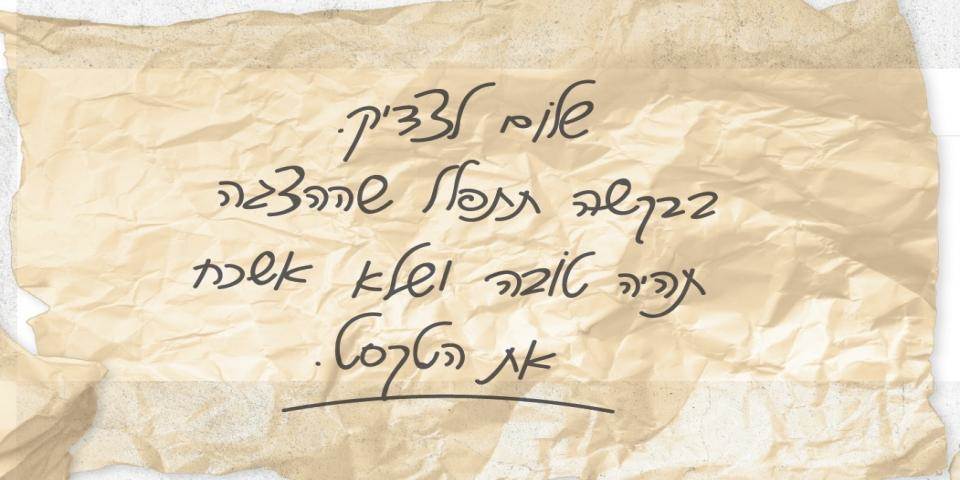 שלום לצדיק.
בבקשה תתפלל שההצגה
תהיה טובה ושלא אשכח
את הטקסט.